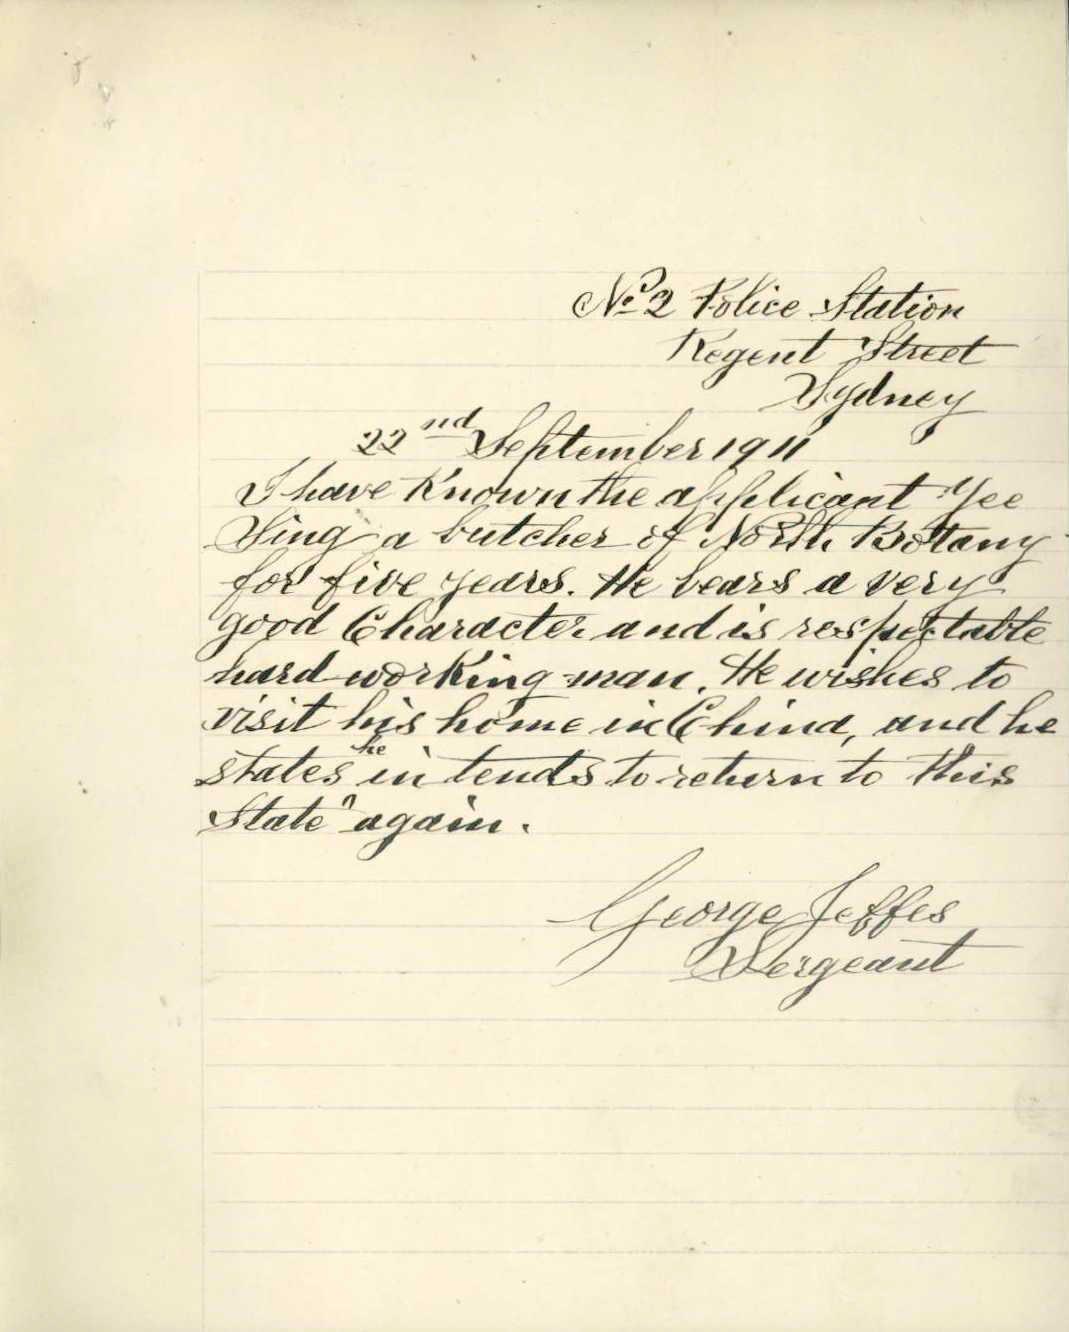 No 2 Police Station
Regent Street
Sydney
22nd September 1911
I have Known the applicant Yee
Sing a butcher of North Bottany
for five years. He bears a very
good Character and is respectable
hard working man. He wishes to
visit his home in China, and he
states he intends to return to this
State again.
George Jeffes
Sergeant